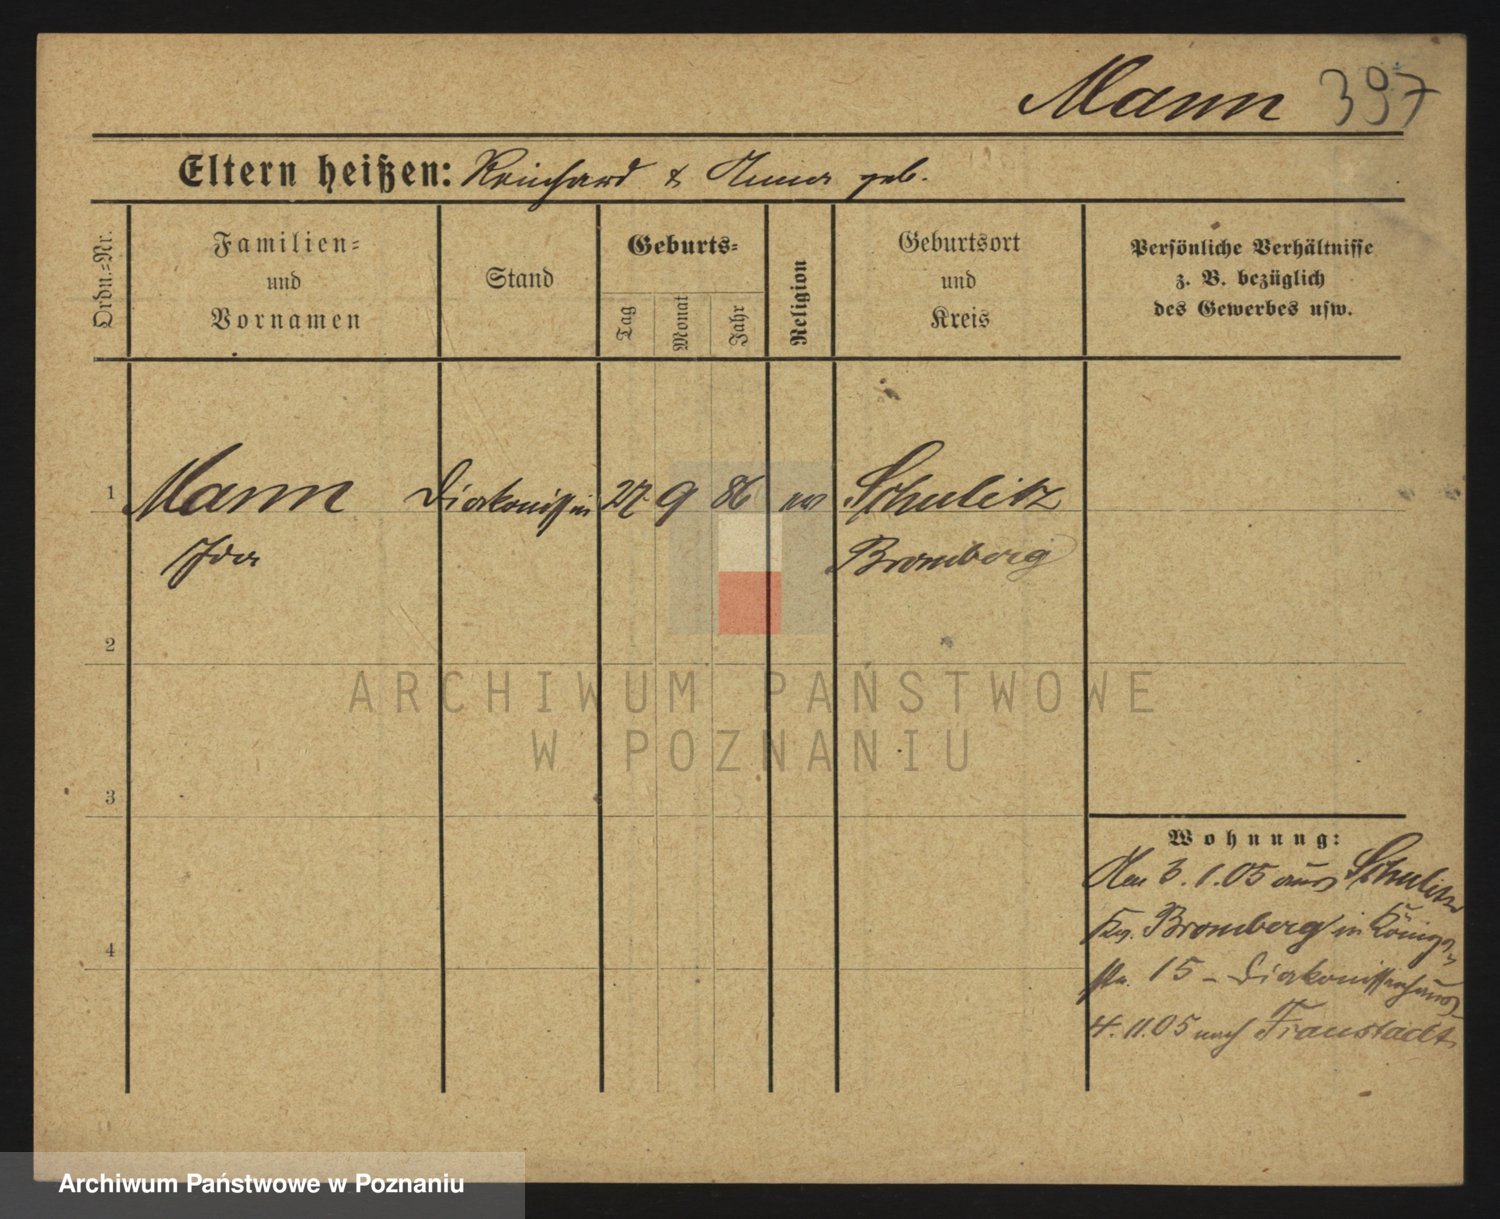 Mann 397
Eltern heißen: Reinhard & Anna geb.
Ordn.=Nr.
Familien=
und
Vornamen
Stand
Geburts=
Tag
Monat
Jahr
Religion
Geburtsort
und
Kreis
Persönliche Verhältnisse
z. B. bezüglich
des Gewerbes usw.
1 Mann Diakonissin 27 9 86 ev Schulitz
Ida Bromberg
2
3
4
Wohnung:
Am 3.1.05 aus Schulitz
Krs. Bromberg in Königs=
str. 15 – Diakonissenhaus
4.11.05 nach Fraustadt
ARCHIWUM PAŃSTWOWE
W POZNANIU
Archiwum Państwowe w Poznaniu